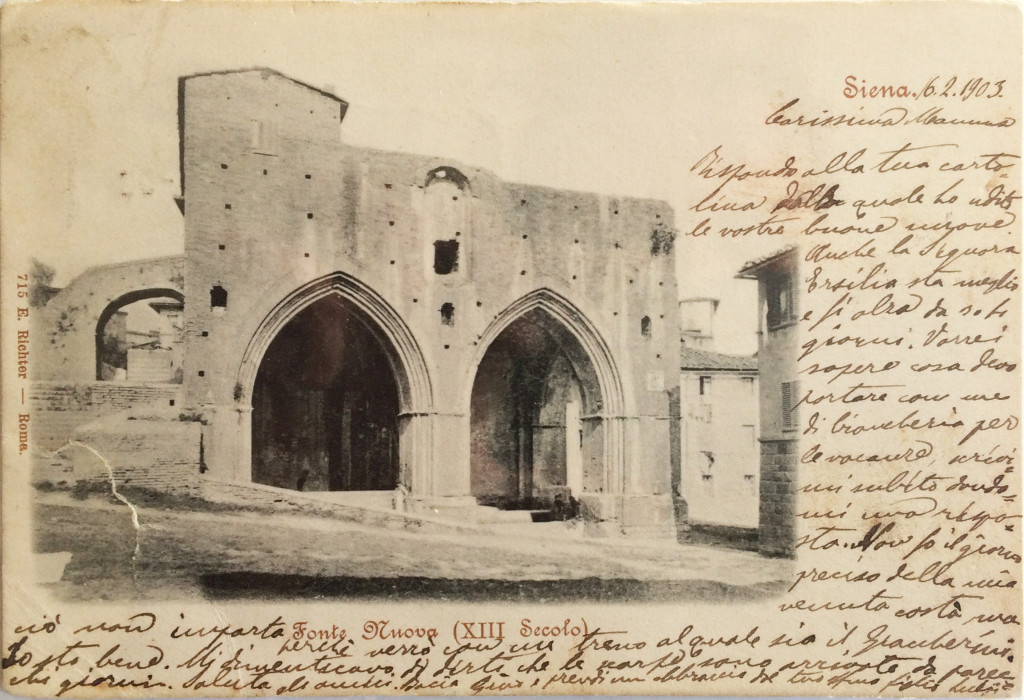 Siena. 6.2.1903.
Carissima Mamma
Rispondo alla tua carto-
lina dalla quale ho udito
le vostre buone nuove.
Anche la Signora
Ersilia sta meglio
e si alza da
giorni. Vorrei
sapere cosa devo
portare con me
di biancheria per
le vacanze, scrivi
mi subito dando-
mi una rispo-
sta. Non so il giorno
preciso della mia
venuta costà ma
ciò non importa
perchè verrò con un treno al quale sia il
Io sto bene. Mi dimenticavo di dirti che le scarpe sono arrivate da parec-
chi giorni. Saluta gli amici, bacia
prendi un abbraccio dal tuo
Fonte Nuova (XIII Secolo)
715 E. Richter — Roma.